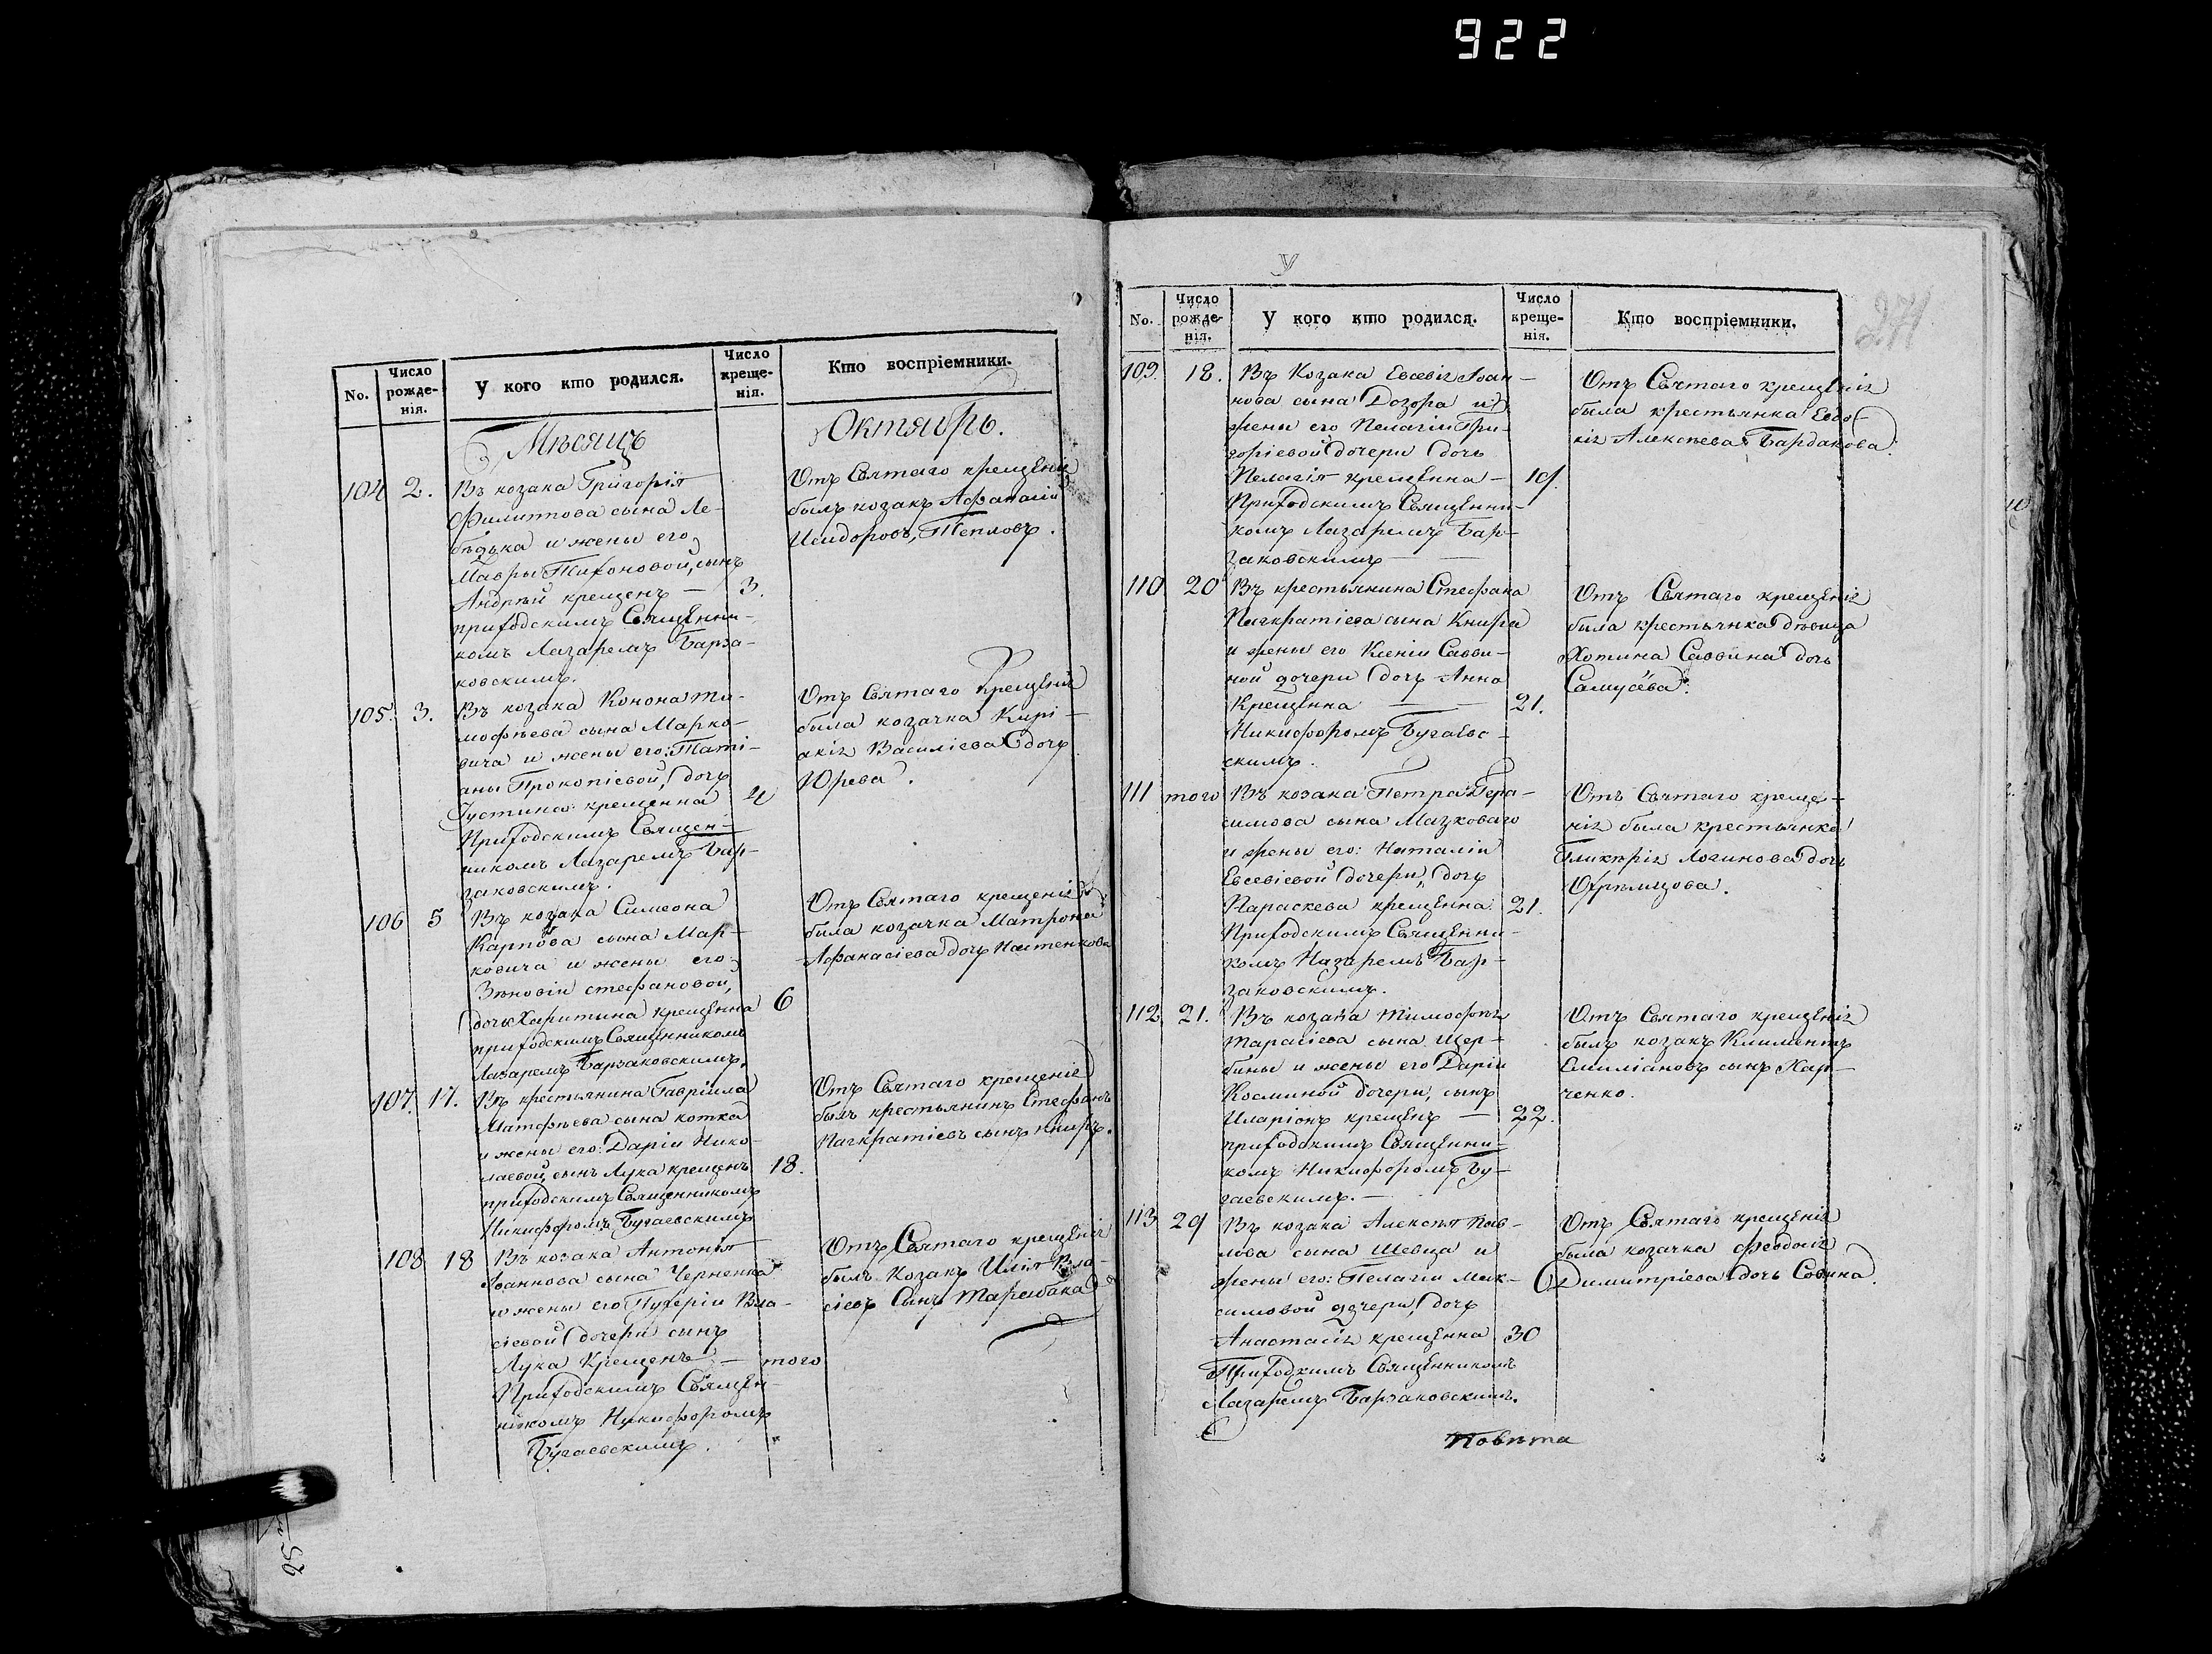 922
No.
Число рожде-нія.
У кого кто родился.
Число креще-нія.
Кто воспріемники.
Мѣсяцъ
Октябрь.
104 2. Въ козака Григорія
Филиппова сына Ле-
бѣдька и жены его
Мавры Тихоновой, сынъ
Андрѣй крещенъ — 3.
приходскимъ Священни-
комъ Лазаремъ Барза-
ковскимъ.
Отъ Святаго крещенія
былъ козакъ Афанасій
Исидоровъ Тепловъ.
105. 3. Въ козака Конона Ти-
мофѣева сына Марко-
вича и жены его: Таті-
аны Прокопіевой, дочь
Іустина крещенна 4
Приходскимъ Священ-
никомъ Лазаремъ Бар-
заковскимъ.
Отъ Святаго крещенія
была козачка Кирі-
акія Василіева дочь
Юрева.
106 5 Въ козака Симеона
Карпова сына Мар-
ковича и жены его
Зѣновіи стефановой,
дочь Харитина крещенна 6
приходскимъ Священникомъ
Лазаремъ Барзаковскимъ.
Отъ Святаго крещенія
была козачка Матрона
Афанасіева дочь Пастенкова
107. 17. Въ крестьянина Гавріила
Матфѣева сына котка
и жены его: Даріи Нико-
лаевой, сынъ Лука крещенъ 18.
приходскимъ Священникомъ
Никифоромъ Бугаевскимъ
Отъ Святаго крещенія
былъ крестьянинъ Стефанъ
Пагкратіевъ сынъ Книръ.
108 18 Въ козака Антонія
Іоаннова сына Черненка
и жены его Пуферіи Вла-
сіевой дочери сынъ
Лука Крещенъ — того
Приходскимъ Священ-
никомъ Никифоромъ
Бугаевскимъ.
Отъ Святаго крещенія
былъ Козакъ Илія Вла-
сіевъ Сынъ Тарабака
У
271
No.
Число рожде-нія.
У кого кто родился.
Число креще-нія.
Кто воспріемники.
109. 18. Въ Козака Евсевія Іоан-
нова сына Дозора и
жены его Пелагіи Гри-
горіевой дочери дочь
Пелагія крещенна — 19.
Приходскимъ Священни-
комъ Лазаремъ Бар-
заковскимъ —
Отъ Святаго крещенія
была крестьянка Евдо-
кія Алексѣева Бардакова.
110 20 Въ крестьянина Стефана
Пагкратіева сына Книра
и жены его Ксеніи Савви-
ной дочери дочь Анна
Крещенна — 21.
Никифоромъ Бугаевс-
скимъ.
Отъ Святаго крещенія
была крестьянка дѣвица
Хотина Саввина дочь
Самусева.
111 того Въ козака Петра Гера-
симова сына Мазковаго
и жены его: Наталіи
Евсевіевой дочери, дочь
Параскева крещенна 21.
Приходскимъ Священни-
комъ Лазаремъ Бар-
заковскимъ.
Отъ Святаго креще-
нія была крестьянка
Гликѣрія Логинова дочь
112. 21. Въ козака Тимофѣя
Тарасіева сына Щер-
бины и жены его Даріи
Косминой дочери, сынъ
Иларіонъ крещенъ — 22.
приходскимъ Священни-
комъ Никифоромъ Бу-
гаевскимъ. —
Отъ Святаго крещенія
былъ козакъ Климентъ
Емиліановъ сынъ Хар-
ченко.
113 29 Въ козака Алексѣя Пав-
лова сына Шевца и
жены его: Пелагіи Мак-
симовой дочери, дочь
Анастасія крещенна 30
Приходскимъ Священникомъ
Лазаремъ Барзаковскимъ.
Отъ Святаго крещенія
была козачка Феодосія
Димитріева дочь Совина.
Повѣта